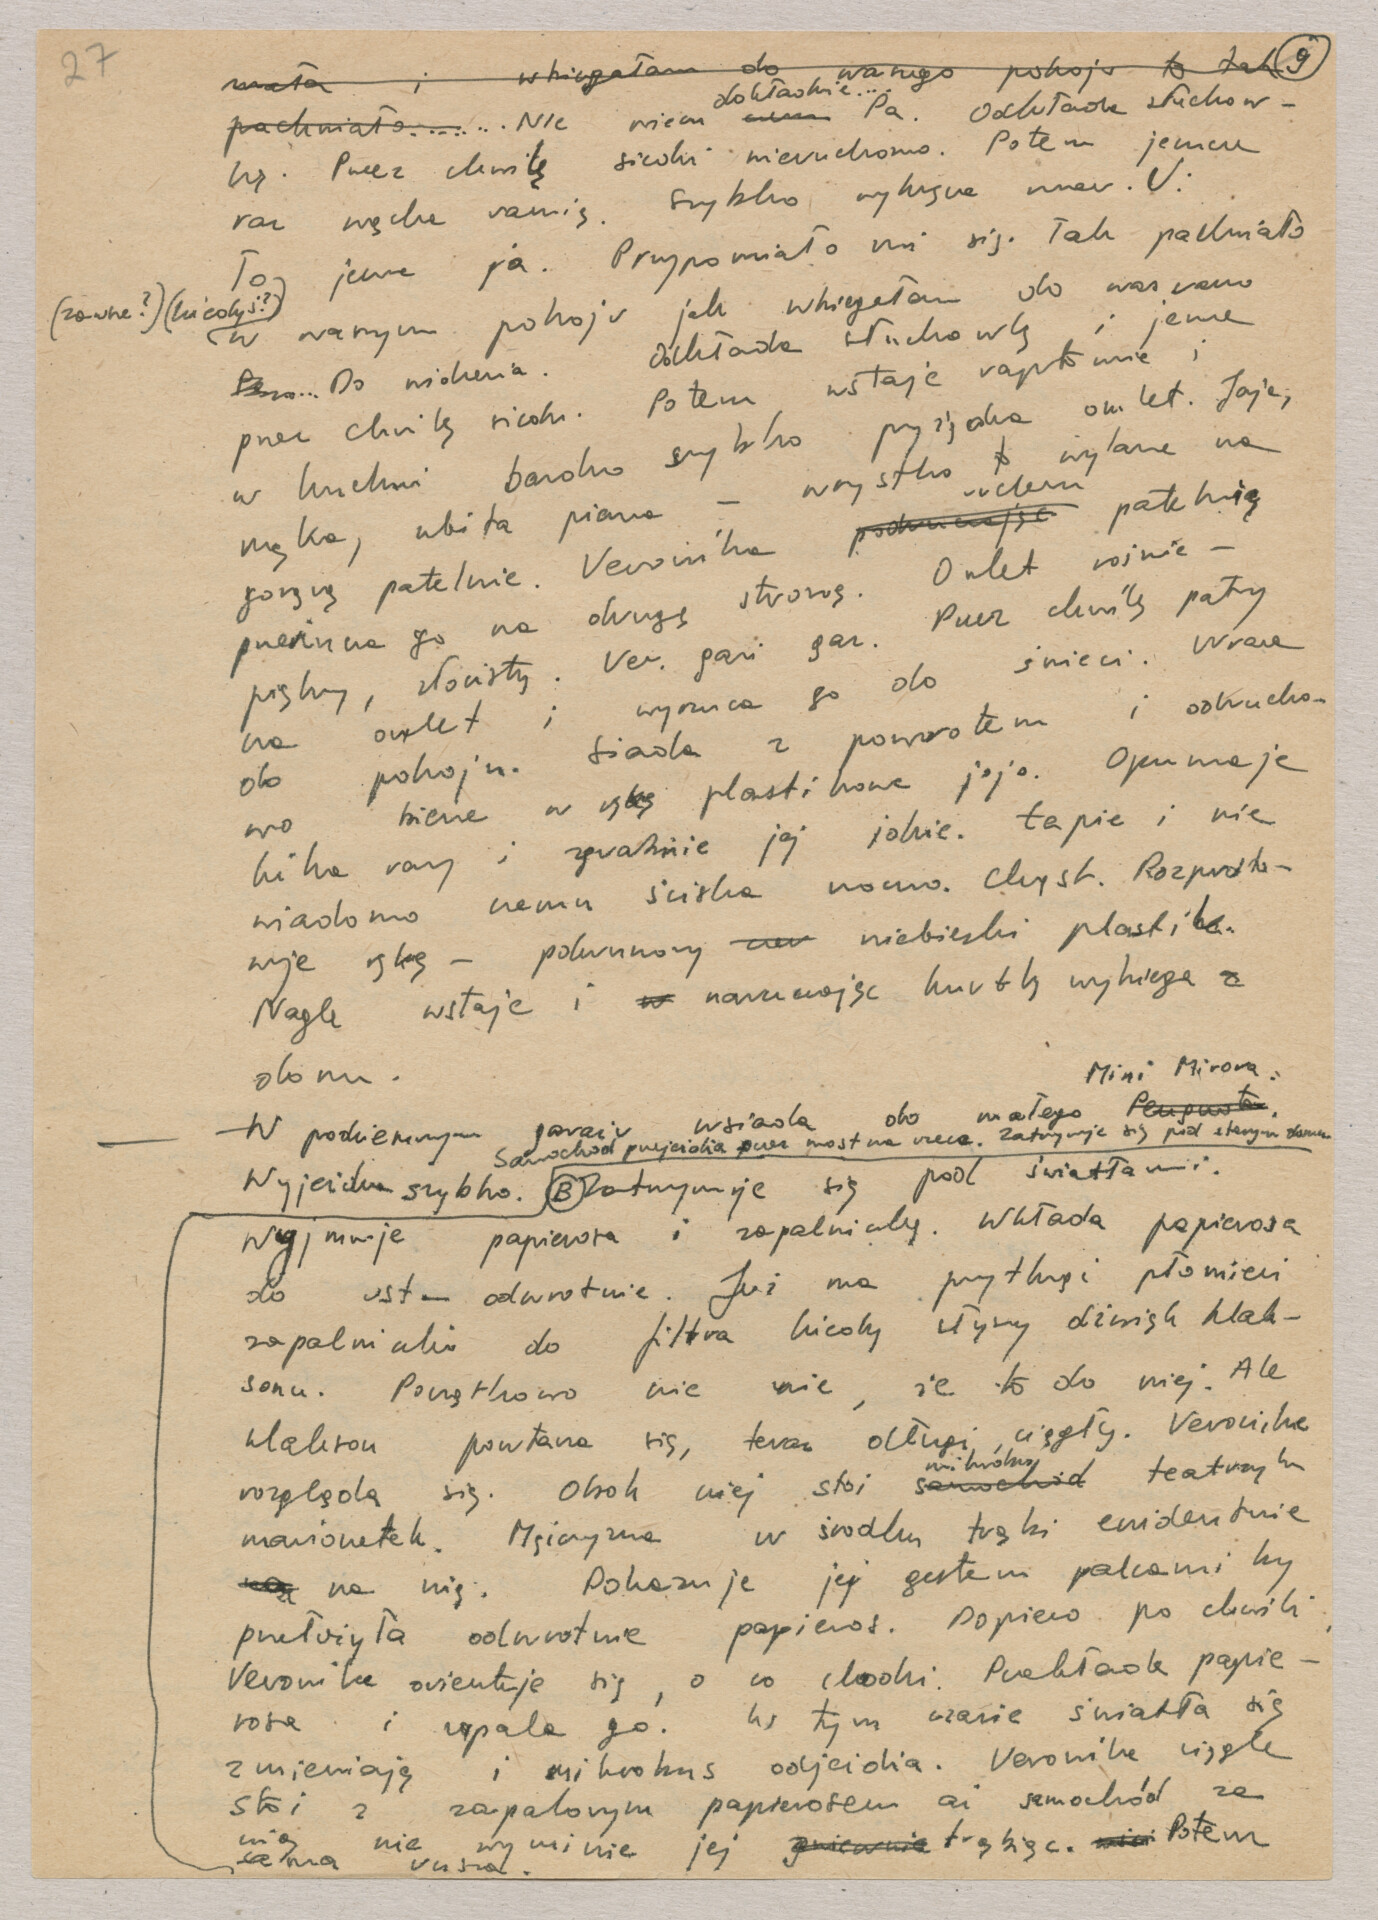 27
9
mała i wbiegałam do waszego pokoju to tak
pachniało....... Nie wiem dokładnie... Pa. Odkłada słuchaw-
kę. Przez chwilę siedzi nieruchomo. Potem jeszcze
raz wącha ramię. Szybko wykręca numer. V:
To jeszcze ja. Przypomniało mi się. Tak pachniało
(zawsze?) (kiedyś?)
w waszym pokoju jak wbiegałam do was rano
... Do widzenia. Odkłada słuchawkę i jeszcze
przez chwilę siedzi. Potem wstaje raptownie i
w kuchni bardzo szybko przyrządza omlet. Jaja,
mąka, ubita piana – wszystko to wylane na
gorącą patelnię. Veronika ruchem podrzucając patelnią
przerzuca go na drugą stronę. Omlet rośnie –
piękny, złocisty. Ver. gasi gaz. Przez chwilę patrzy
na omlet i wyrzuca go do śmieci. Wraca
do pokoju. Siada z powrotem i odrucho-
wo bierze w rękę plastikowe jojo. Opuszcza je
kilka razy i zgrabnie jej idzie. Łapie i nie
wiadomo czemu ściska mocno. Chrzęst. Rozprosto-
wuje rękę – pokruszony niebieski plastik.
Nagle wstaje i narzucając kurtkę wybiega z
domu.
Mini Morrisa.
— W podziemnym garażu wsiada do małego Peugeota.
Samochód przejeżdża przez most na rzece. Zatrzymuje się pod starym domem
Wyjeżdża szybko. B Zatrzymuje się pod światłami.
Wyjmuje papierosa i zapalniczkę. Wkłada papierosa
do ust – odwrotnie. Już ma przytknąć płomień
zapalniczki do filtra kiedy słyszy dźwięk klak-
sonu. Początkowo nie wie, że to do niej. Ale
klakson powtarza się, teraz długi, ciągły. Veronika
rozgląda się. Obok niej stoi mikrobus samochód teatrzyku
marionetek. Mężczyzna w środku trąbi ewidentnie
na nią. Pokazuje jej gestem palcami by
przełożyła odwrotnie papieros. Dopiero po chwili
Veronika orientuje się, o co chodzi. Przekłada papie-
rosa i zapala go. W tym czasie światła się
zmieniają i mikrobus odjeżdża. Veronika ciągle
stoi z zapalonym papierosem aż samochód za
nią nie wyminie jej gniewnie trąbiąc. Potem
sama rusza.